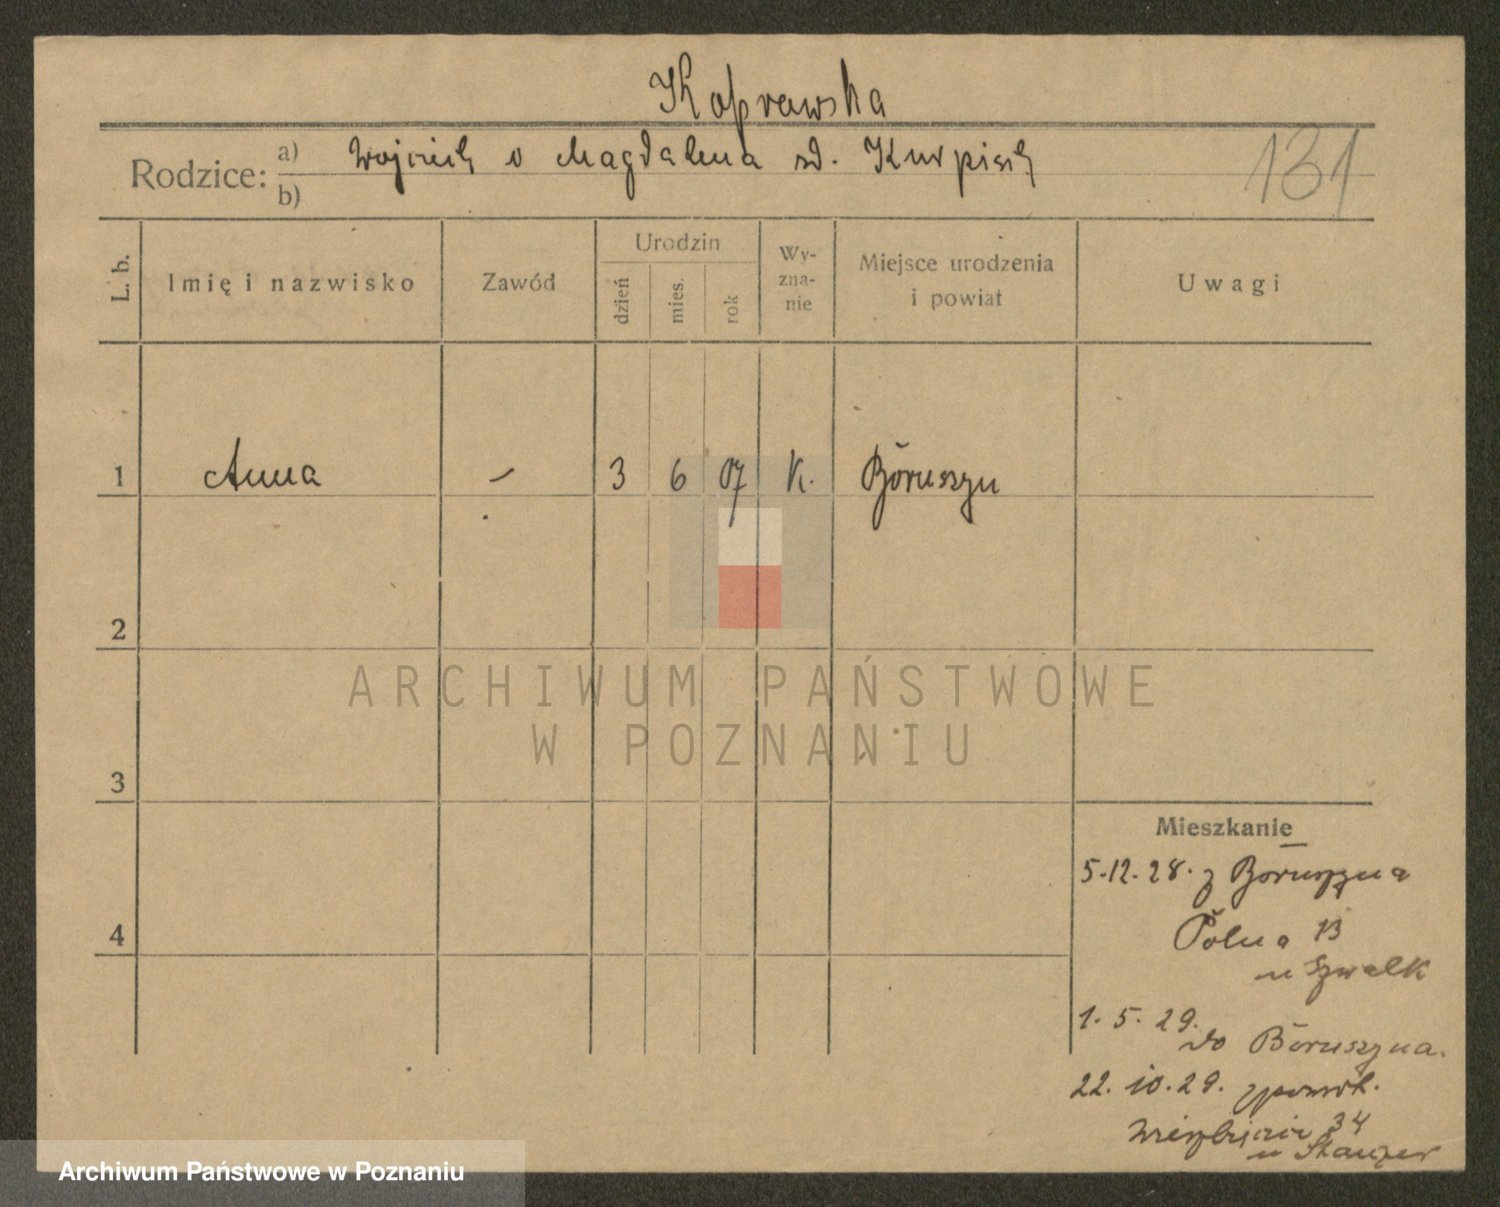 Koprowska
131
Rodzice: a) Wojciech o Magdalena zd. Kurpisch
b)
L. b.
Imię i nazwisko
Zawód
Urodzin
dzień
mies.
rok
Wy-
zna-
nie
Miejsce urodzenia
i powiat
Uwagi
1 Anna — 3 6 07 K. Boruszyn
2
ARCHIWUM PAŃSTWOWE
W POZNANIU
3
Mieszkanie
5.12.28. z Boruszyna
4
Polna 13
u
1.5.29.
do Boruszyna.
22.10.29.
34
u
Archiwum Państwowe w Poznaniu